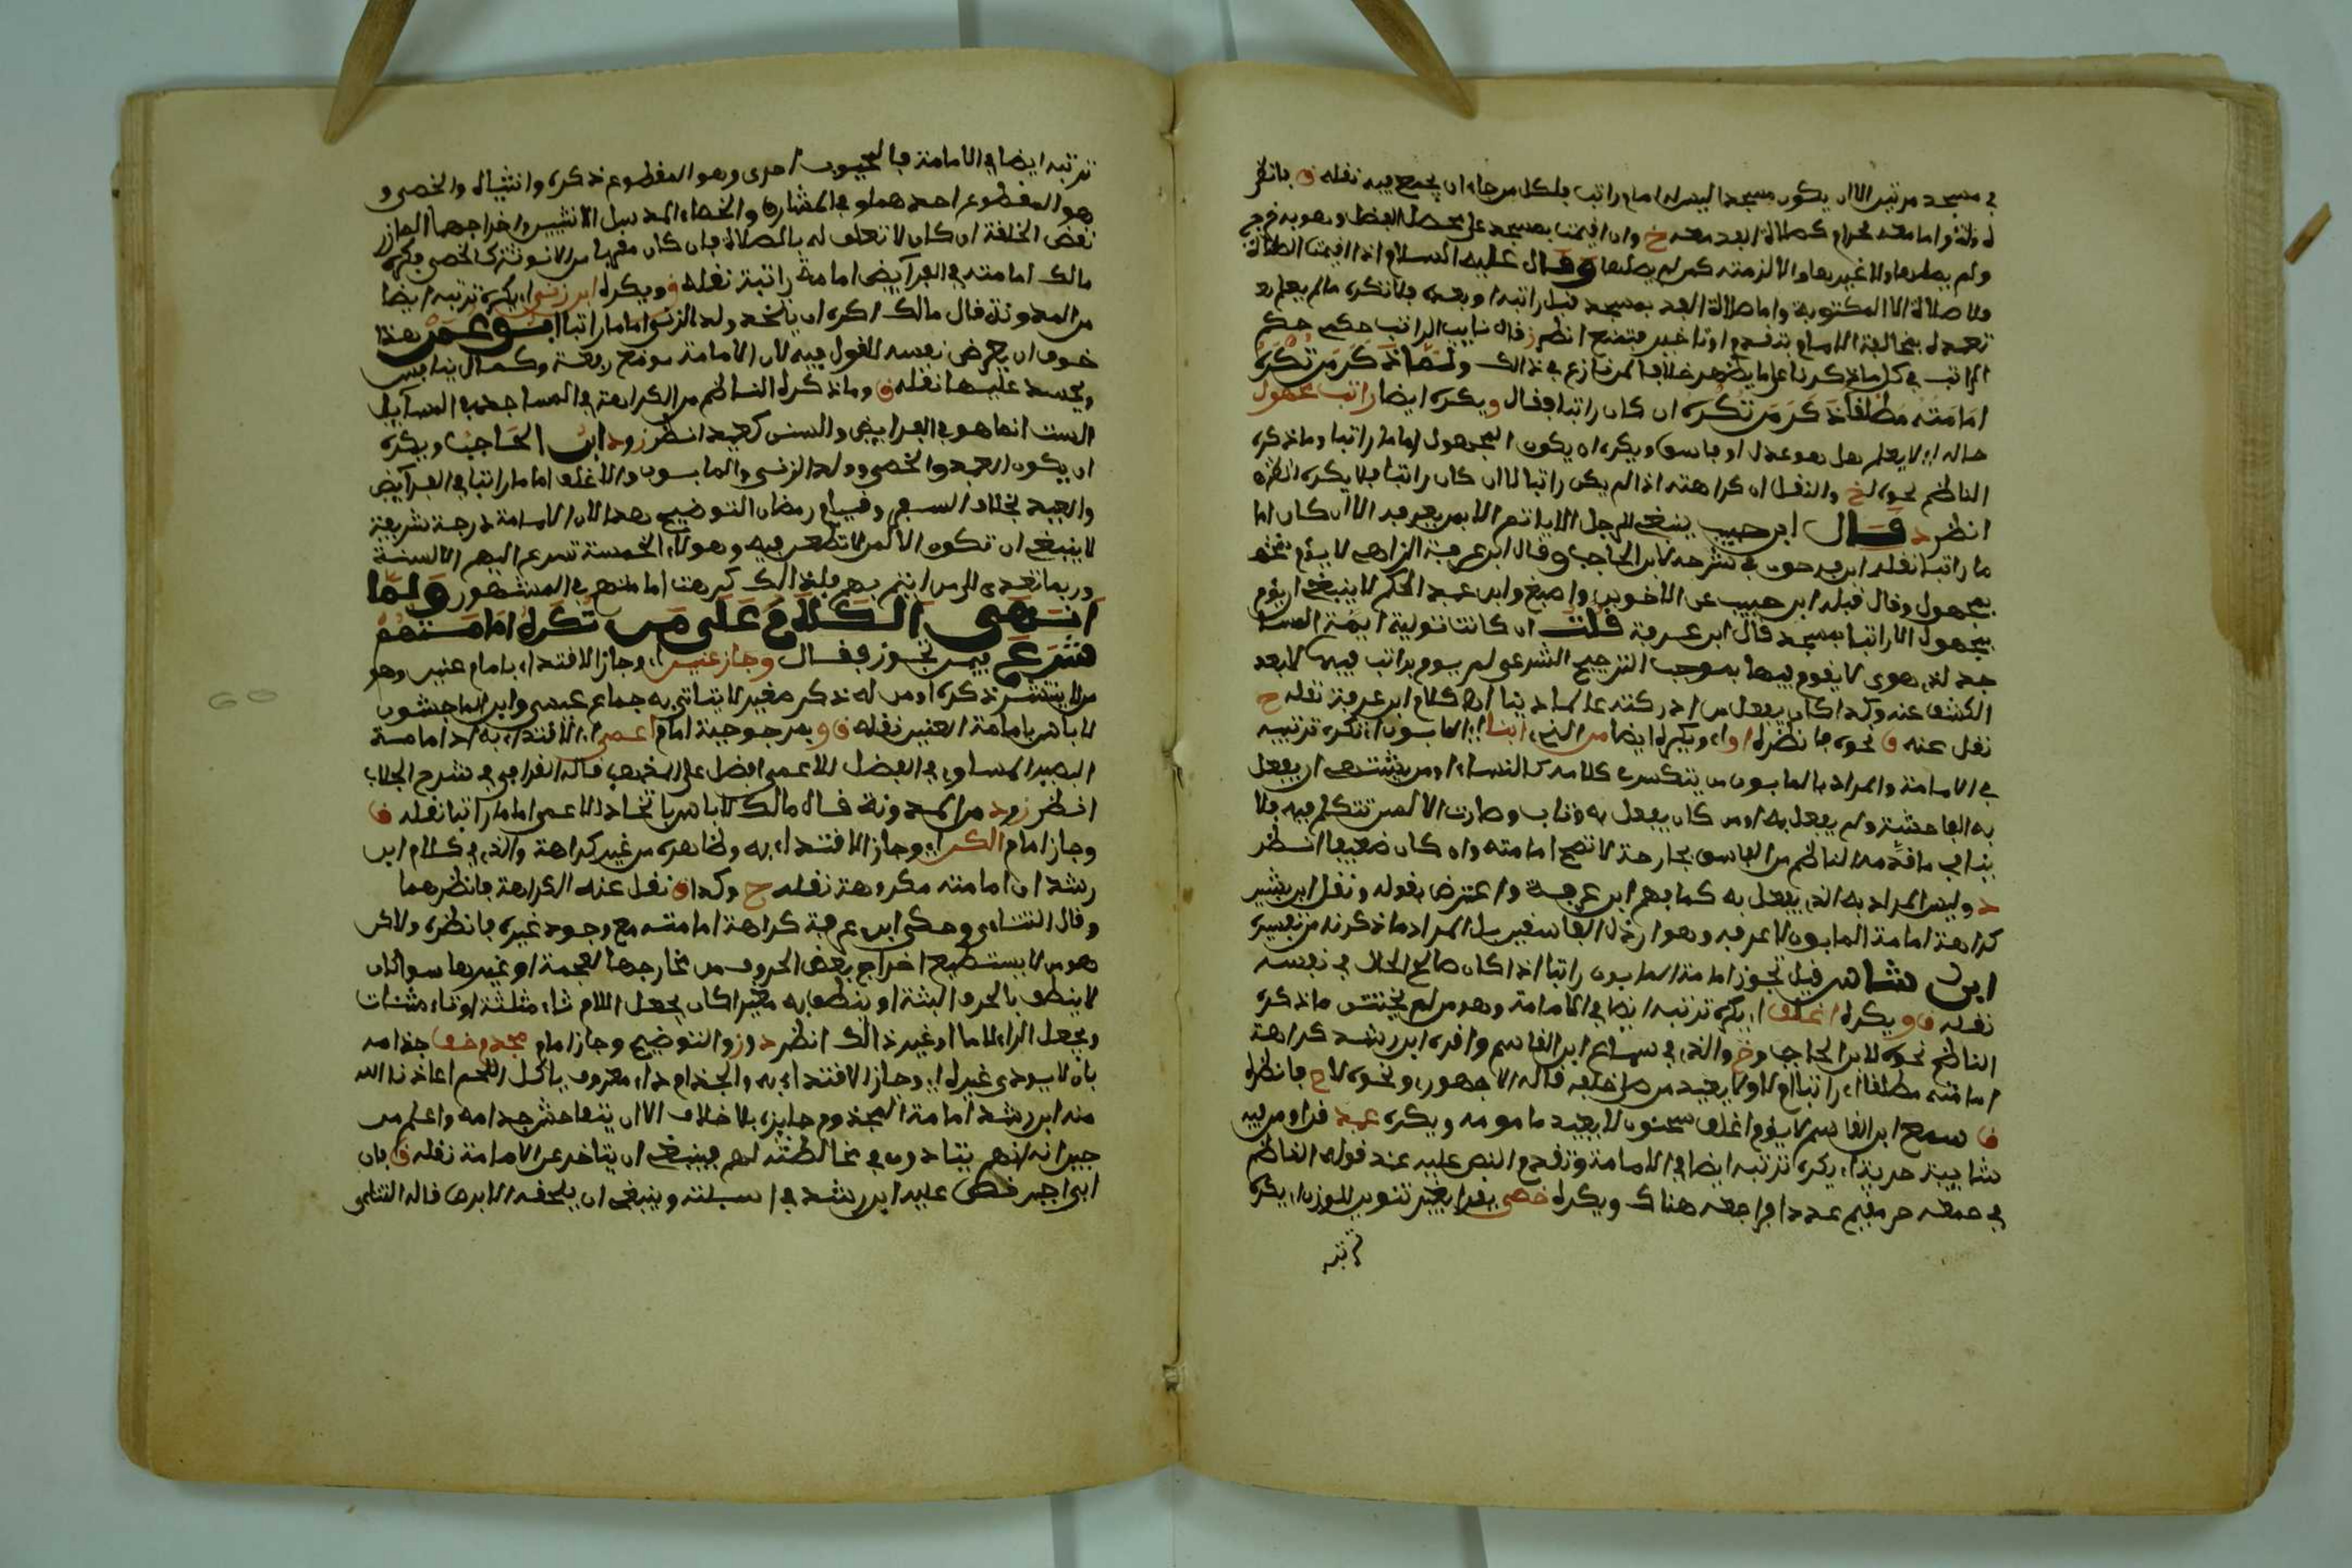 في مسجد مرتين الا ان يكون مسجدا ليس له امام راتب فلكل من جاء ان يجمع فيه نقله ق فانظر
ولم يصلها ولا غيرها والا لزمته كمن لم يصلها وقال عليه السلام اذا اقيمت الصلاة
ولا صلاة الا المكتوبة واما صلاة الفذ بمسجد قبل راتبه او بعده فلا تكره ما لم يعلم
تعمده لمخالفة الامام بتقدم او تاخير فتمنع انظر ز قال نايب الراتب حكمه حكم
الراتب في كل ما ذكرنا على ما يظهر خلافا لمن نازع في ذالك ولما ذكر من تكره
امامته مطلقا ذكر من تكره ان كان راتبا فقال ويكره ايضا راتب مجهول
حاله اي لا يعلم هل هو عدل او فاسق ويكره ان يكون المجهول اماما راتبا وما ذكره
الناظم نحوه لخ والنفل ان كراهته اذا لم يكن راتبا لا ان كان راتبا فلا يكره انظره
انظر د قال ابن حبيب ينبغي للرجل الا ياتم الا بمن يعرفه الا ان كان اما
ما راتبا نقله ابن فرحون في شرحه لابن الحاجب وقال ابن عرفة الزاهي لا يؤم
مجهول وقال قبله ابن حبيب عن الاخوين واصبغ وابن عبد الحكم لا ينبغي ان يؤم
مجهول الا راتبا بمسجد قال ابن عرفة قلت ان كانت تولية ايمة المساجد
لذي هوى لا يقوم فيها بموجب الترجيح الشرعي لم يؤم براتب فيها الا بعد
الكشف عنه وكذا كان يفعل من ادركته عالما دينا انظر كلام ابن عرفة نقله ح
نقل عنه ق نحوه فانظره او ويكره ايضا من ابنا اي المابون اي تكره ترتبه
في الامامة والمراد بالمابون من يتكسر في كلامه كالنساء او من يشتهي ان يفعل
به الفاحشة ولم يفعل به او من كان يفعل به وتاب وصارت الالسن تتكلم فيه فلا
ينافي ما قدمه الناظم من الفاسق بجارحة لا تصح امامته وان كان ضعيفا انظر
د وليس المراد به الذي يفعل به كما فهم ابن عرفة واعترض بقوله ونقل ابن بشير
كراهة امامة المابون لا اعرفه وهو ارذل الفاسقين بل المراد ما ذكرنه من تفسيره
ابن شاس قيل تجوز امامة المابون راتبا اذا كان صالح الحال في نفسه
نقله ق ويكره اغلف اي يكره ترتبه ايضا في الامامة وهو من لم يختتن ما ذكره
الناظم نحوه لابن الحاجب وخ والذي في سماع ابن القاسم واقره ابن رشد كراهة
امامته مطلقا اي راتبا ام لا ولا يعيد من صلى خلفه قاله الاجهوري ونحوه لاح فانظره
ق سمع ابن القاسم لا يؤم اغلف سحنون لا يعيد مامومه ويكره عبد قرا ومن فيه
شايبة حرية اي يكره ترتبه ايضا في الامامة وتقدم النص عليه عند قول الناظم
في جمعة حر مقيم عددا فراجعه هناك ويكره خصي يقرا بغير تنوين للوزن اي يكره
ترتبه

ترتبه ايضا في الامامة فالمجبوب احرى وهو المقطوع ذكره وانثياه والخصي و
هو المقطوع احدهما وفي المشارق والخصاء المد سل الانثيين واخراجهما المازر
نقص الخلقة ان كان لا تعلق له بالصلاة فان كان مقربا من الانوثة كالخصي فكره
مالك امامته في الفرآيض امامة راتبة نقله ق ويكره ابن زنى اي يكره ترتبه ايضا
من المدونة قال مالك اكره ان يتخذ ولد الزنى اماما راتبا ابو عمر هذا
خوف ان يعرض نفسه للقول فيه لان الامامة موضع رفعة وكمال ينافس
ويحسد عليها نقله ق وما ذكره الناظم من الكراهة في المسايل
الست انما هو في الفرايض والسنن كعيد انظر ز ود ابن الحاجب ويكره
ان يكون العبد والخصي وولد الزنى والمابون والاغلف اماما راتبا في الفرآيض
والعيد بخلاف السفر وقيام رمضان التوضيح هذا لان الامامة درجة شريفة
لا ينبغي ان تكون الا لمن لا تطعن فيه وهولاء الخمسة تسرع اليهم الالسنة
وربما تعدى الى من ايتم بهم فلذالك كرهت امامتهم في المشهور ولما
انتهى الكلام على من تكره امامتهم
شرع فيمن تجوز فقال وجاز عنين اي وجاز الاقتداء بامام عنين وهو
من لا ينتشر ذكره او من له ذكر صغير لا يتاتى به جماع عيسى وابن الماجشون
لا باس بامامة العنين نقله ق وبمرجوحية امام اعمى اي الاقتداء به اذ امامة
البصير المساوي في الفضل للاعمى افضل على المذهب قاله القرافي في شرح الجلاب
انظر ز ود من المدونة قال مالك لا باس باتخاذ الاعمى اماما راتبا نقله ق
وجاز امام الكن اي وجاز الاقتداء به وظاهره من غير كراهة والذي في كلام ابن
رشد ان امامته مكروهة نقله ح وكذا ق نقل عنه الكراهة فانظرهما
وقال التتاءي وحكى ابن عرفة كراهة امامته مع وجود غيره فانظره والالكن
هو من لا يستطيع اخراج بعض الحروف من مخارجها لعجمة او غيرها سواء كان
لا ينطق بالحرف البتة او ينطق به مغيرا كان يجعل اللام ثاء مثلثة او تاء مثنات
ويجعل الراء لاما او غير ذالك انظر د وز والتوضيح وجاز امام مجذم خف جذامه
بان لا يوذي غيره اي وجاز الاقتداء به والجذام داء معروف ياكل اللحم اعاذنا الله
منه ابن رشد امامة المجذوم جايزة بلا خلاف الا ان يتفاحش جذامه واعلم من
جيرانه انهم يتاذون في مخالطته لهم فينبغي ان يتاخر عن الامامة نقله ق فان
ابى اجبر نص عليه ابن رشد في اسئلته وينبغي ان يلحقه الابرص قاله التتاءي